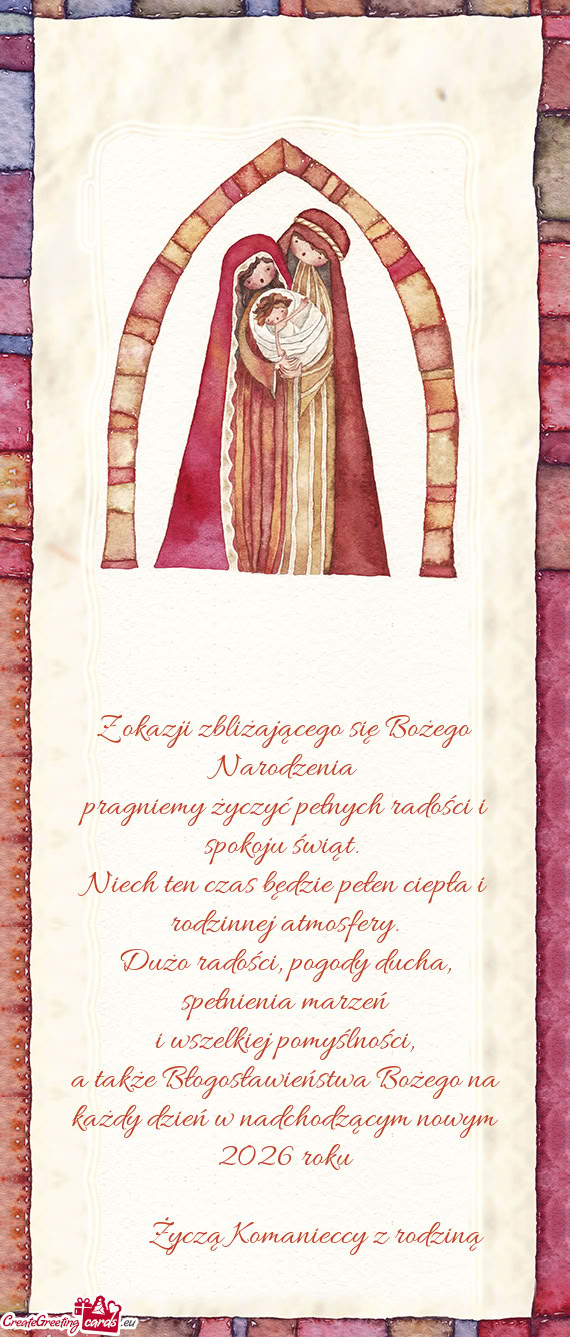 Z okazji zbliżającego się Bożego
Narodzenia
pragniemy życzyć pełnych radości i
spokoju świąt.
Niech ten czas będzie pełen ciepła i
rodzinnej atmosfery.
Dużo radości, pogody ducha,
spełnienia marzeń
i wszelkiej pomyślności,
a także Błogosławieństwa Bożego na
każdy dzień w nadchodzącym nowym
2026 roku
Życzą Komanieccy z rodziną
CreateGreeting cards .eu